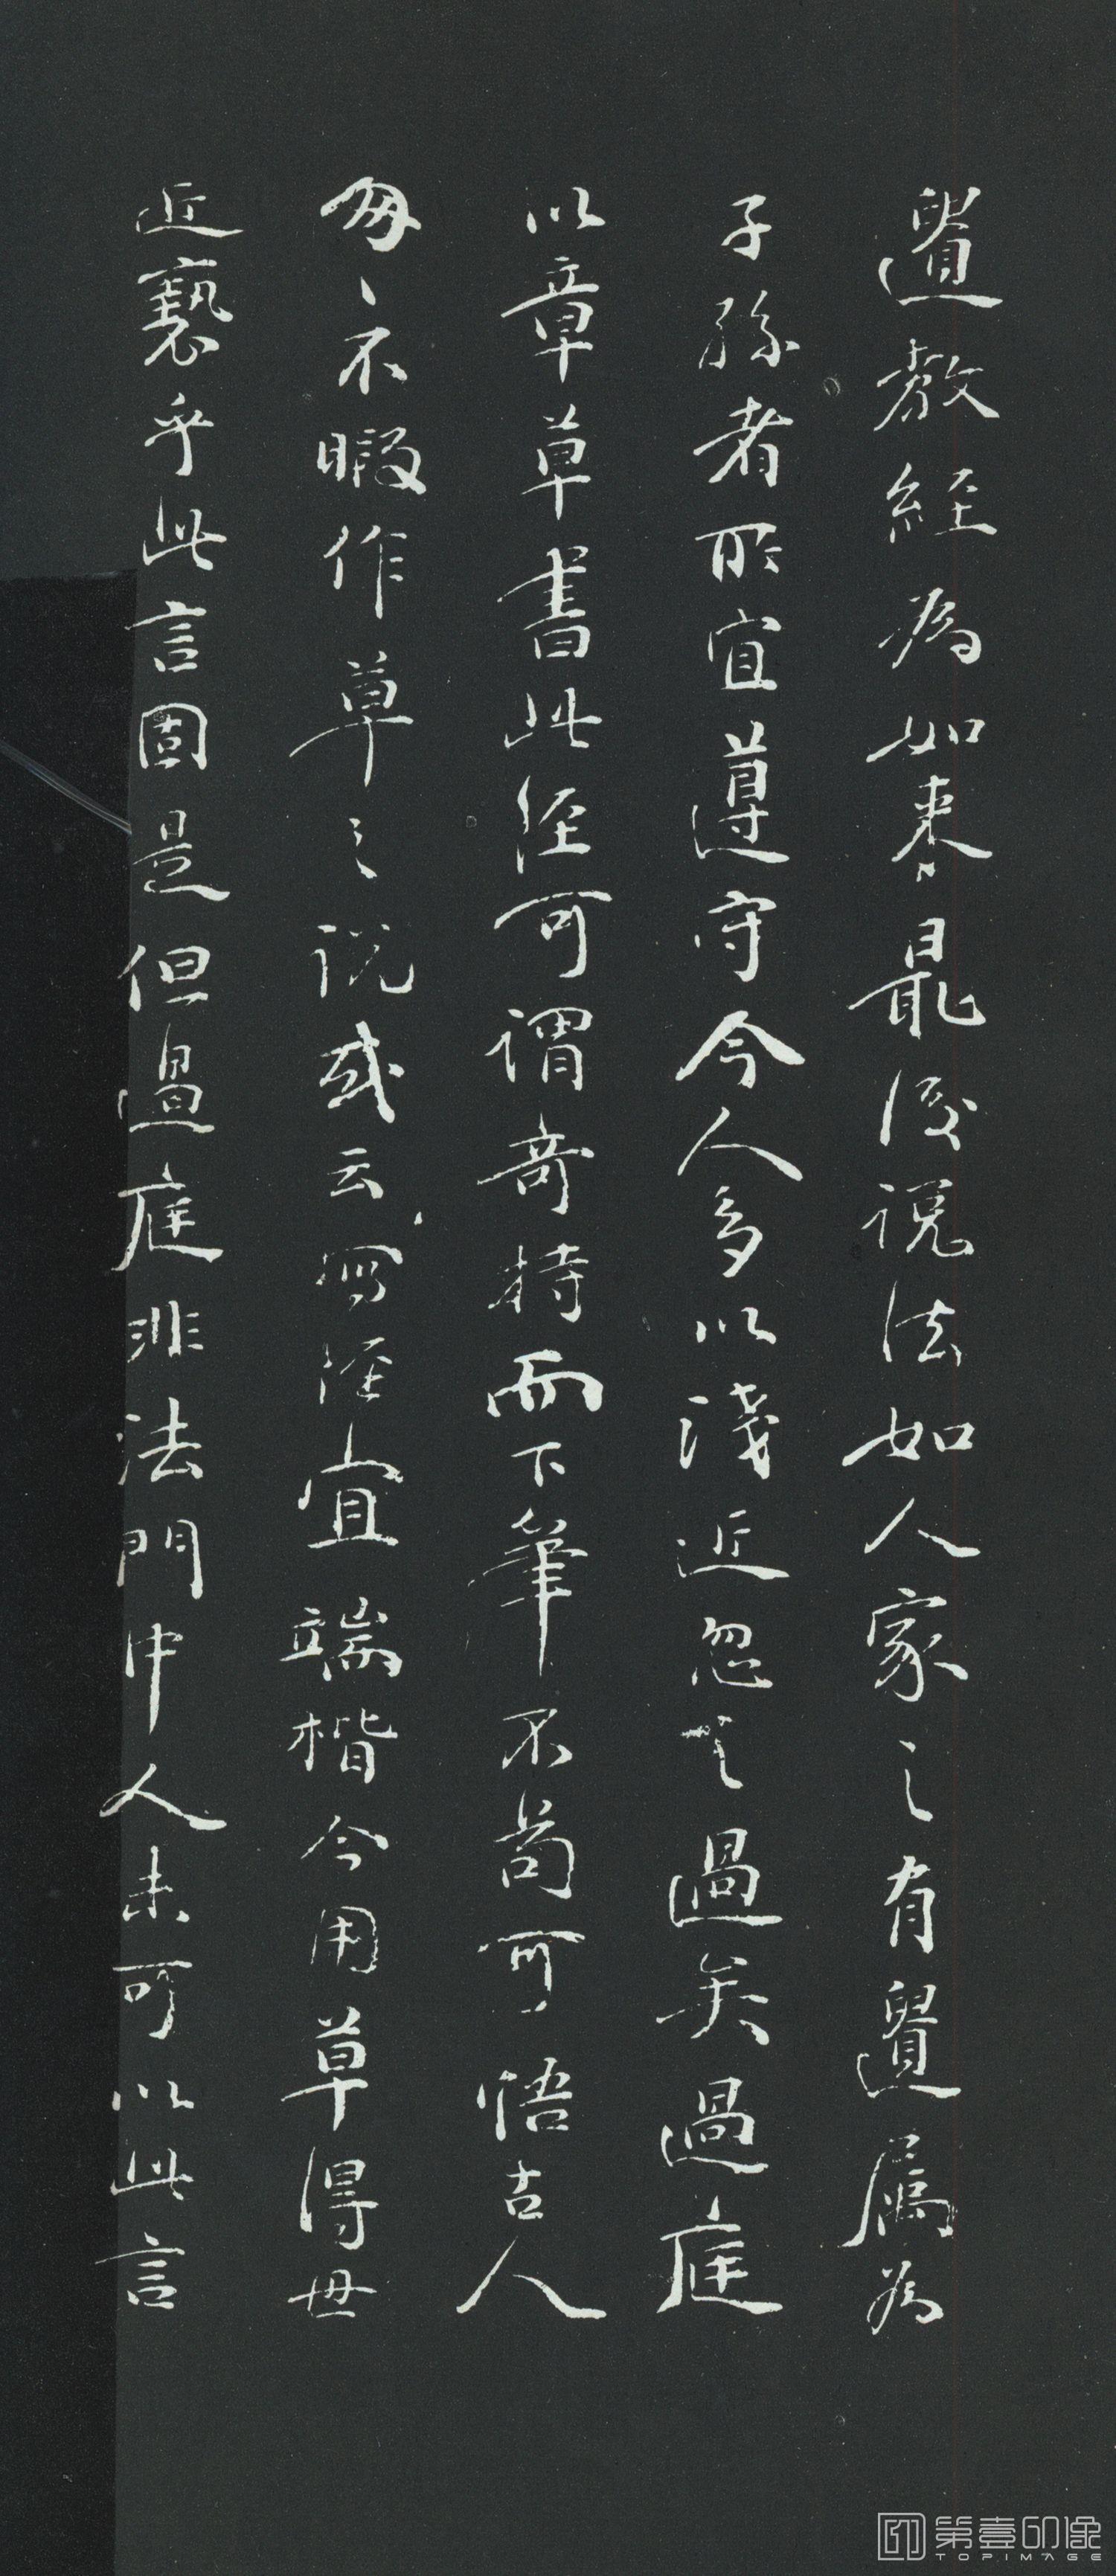 遺教經為如来最後說法如人家之有遺属為
子孫者所宜遵守今人多以淺近忽之過矣過庭
以章草書此經可謂奇特而下筆不苟可悟古人
匆〻不暇作草之說或云寫經宜端楷今用草得毋
近褻乎此言固是但過庭非法門中人未可以此言
第壹印像
TOPIMAGE